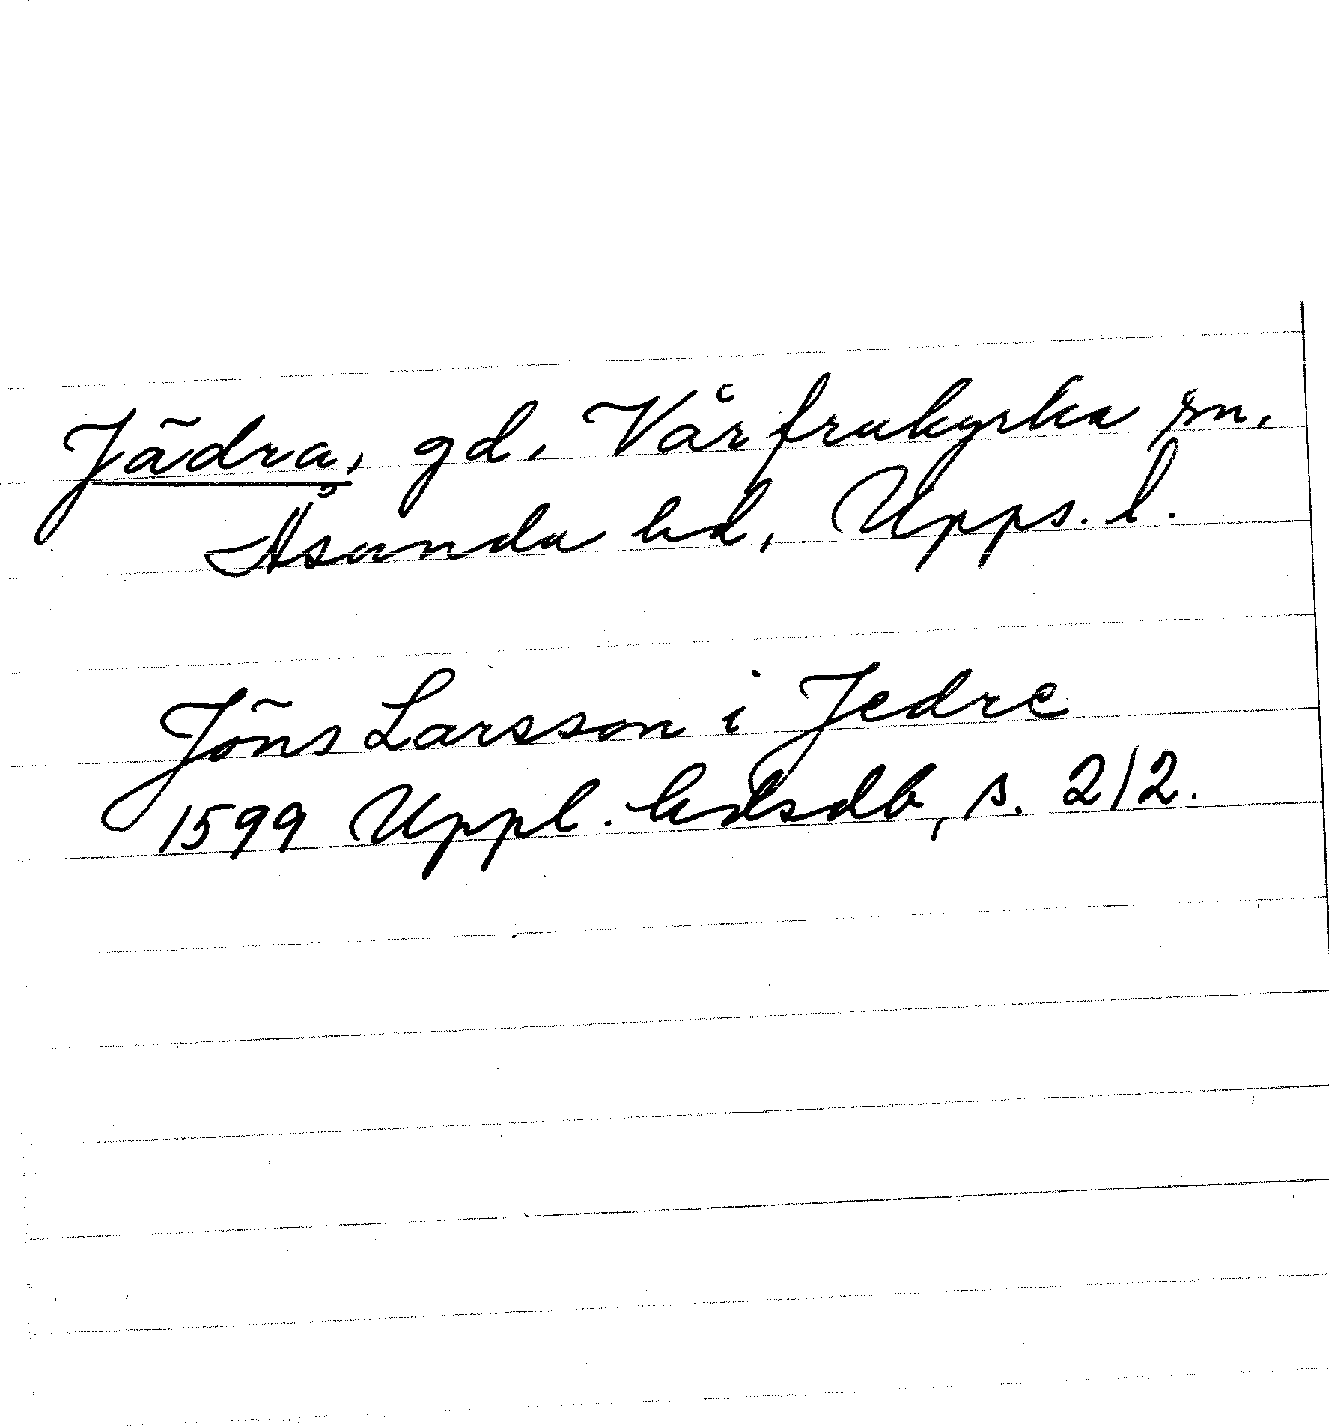 Jädra, gd, Vårfrukyrka sn,
Åsunda hd, Upps. l.
Jöns Larsson i Jedre
1599 Uppl. hdsdb, s. 212.